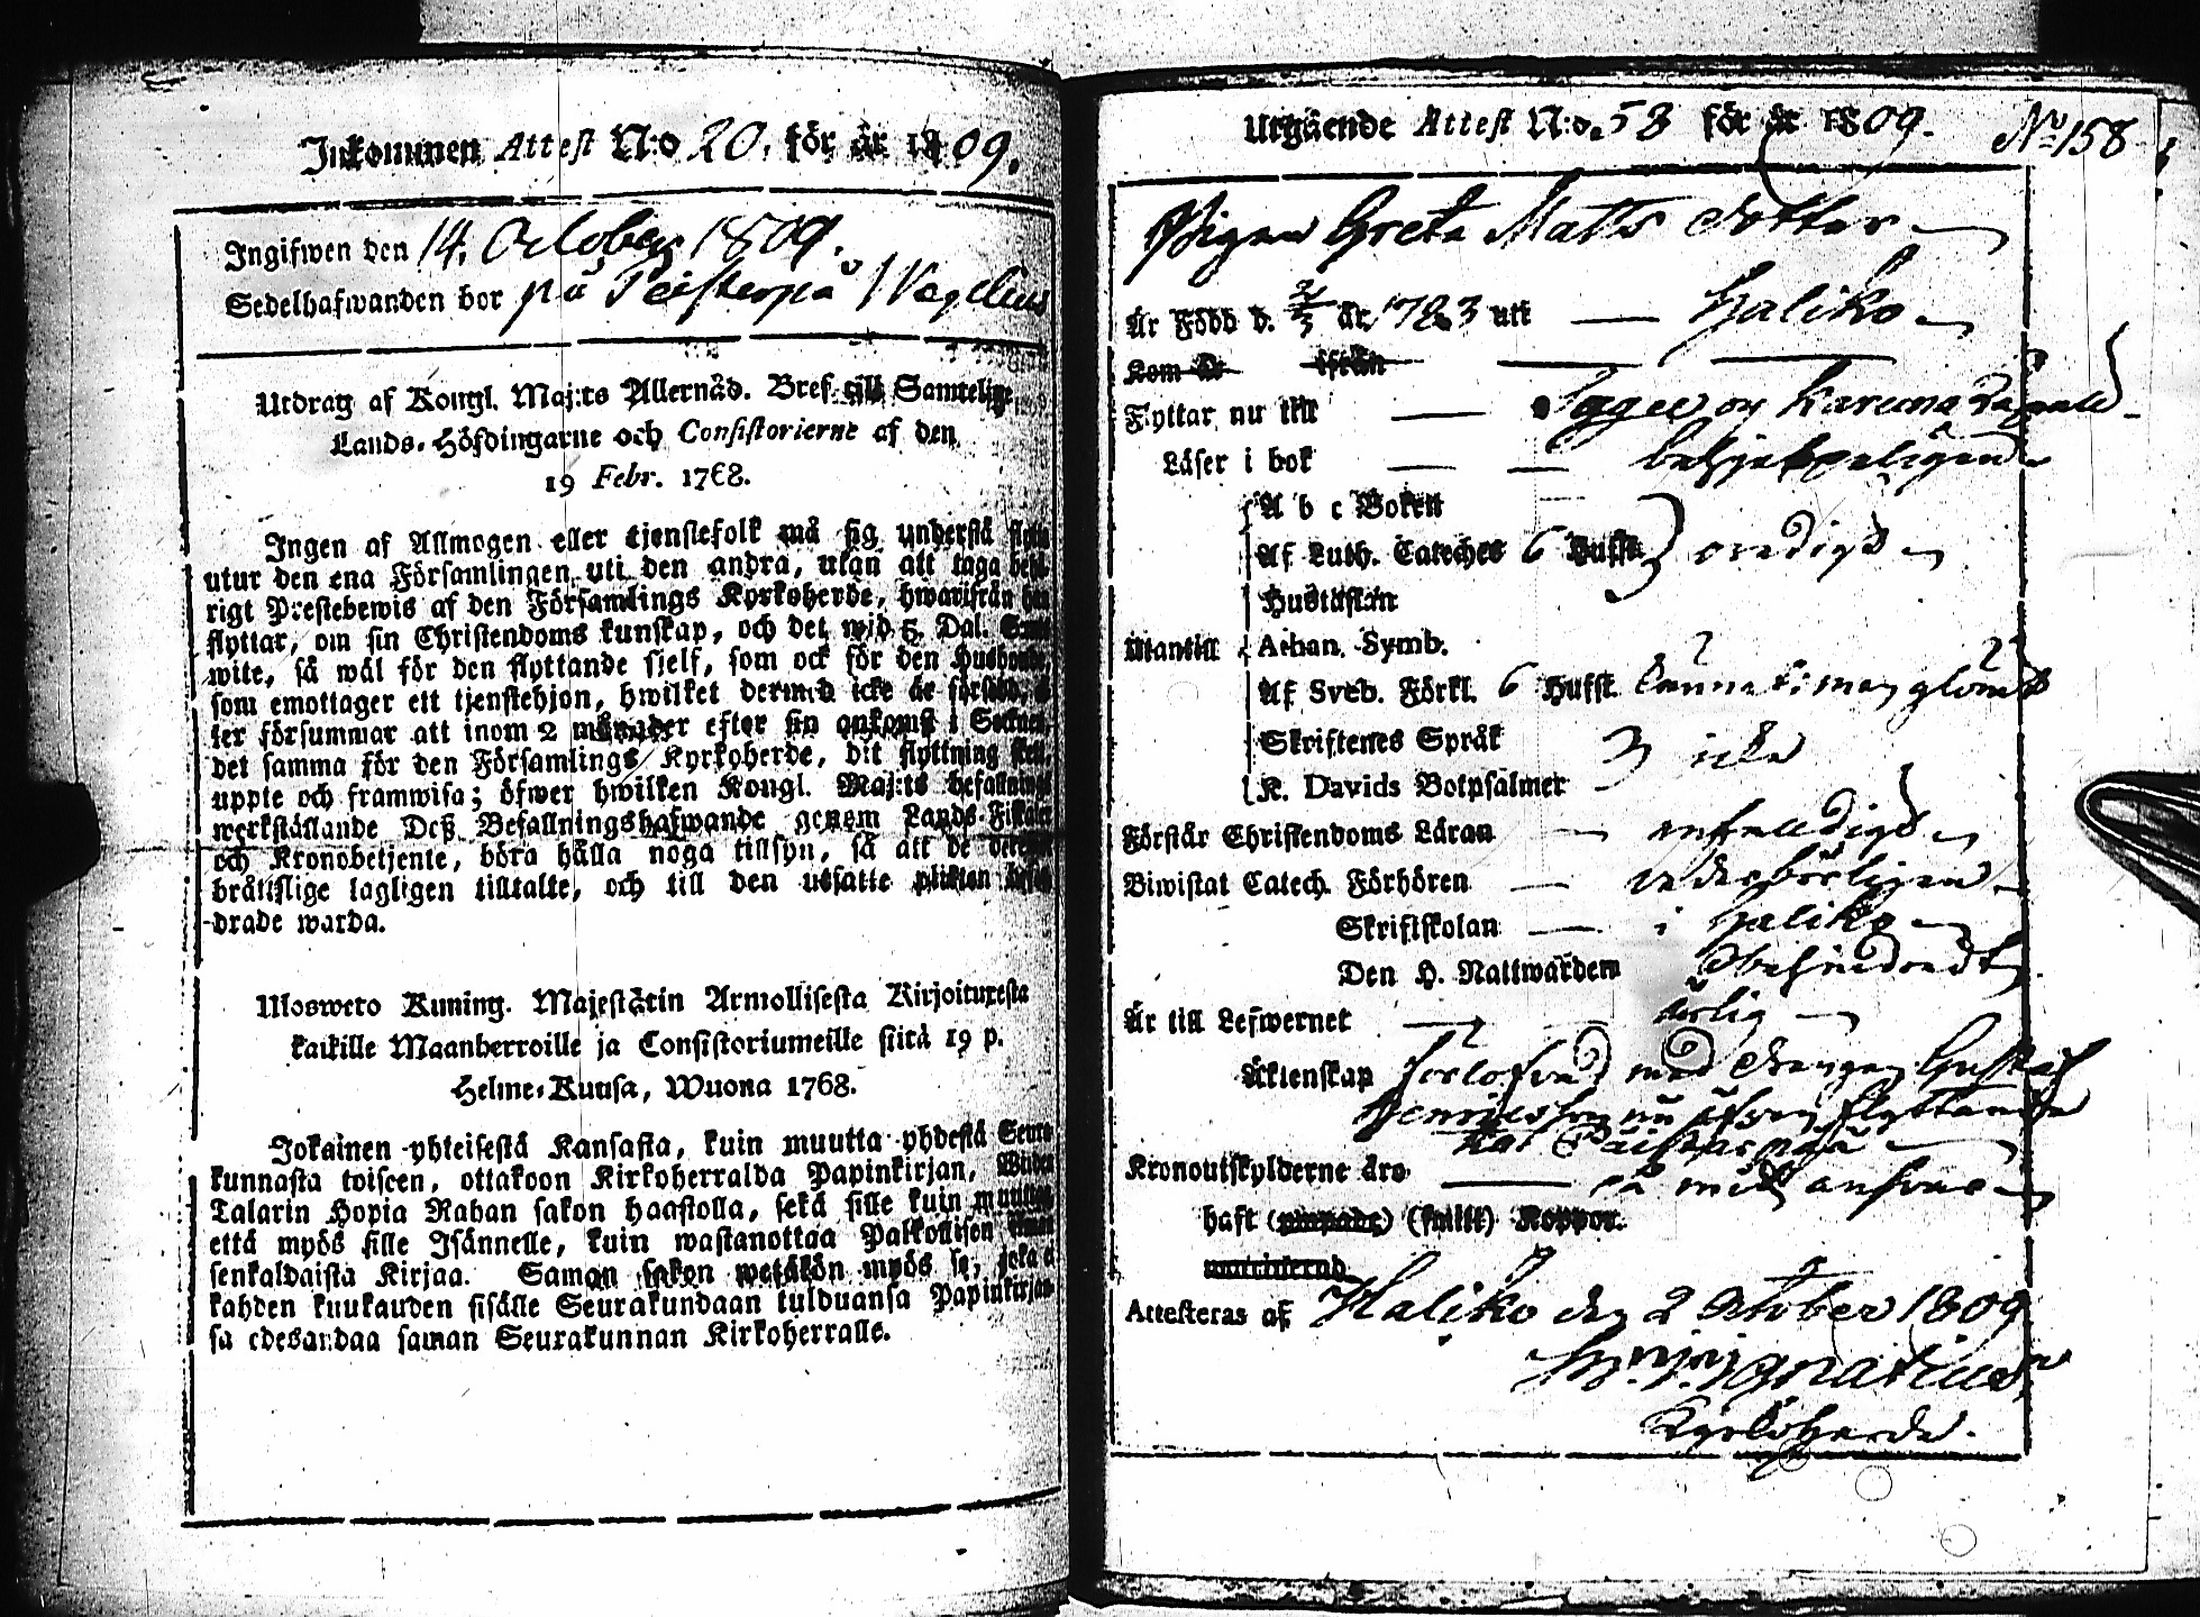 Inkommen Attest N:o 20. för år 1809.
Ingifwen den 14. October 1809.
Sedelhafwanden bor på Peisterpä
Utdrag af Kongl. Maj:ts Allernåd. Bref till Samtelige
Lands-Höfdingarne och Consistorierne af den
19 Febr. 1768.
Ingen af Allmogen eller tjenstefolk må sig understå flytta
utur den ena Församlingen uti den andra, utan att taga behö-
rigt Prestebewis af den Församlings Kyrkoherde, hwarifrån han
flyttar, om sin Christendoms kunskap, och det wid 5. Dal.
wite, så wäl för den flyttande sjelf, som ock för den Husbonde,
som emottager ett tjenstehjon, hwilket dermed icke är försedd,
ler försummar att inom 2 månader efter sin ankomst i Socknen,
det samma för den Församlings Kyrkoherde, dit flyttning sker,
uppte och framwisa; öfwer hwilken Kongl. Maj:ts befallnings
werkställande Deß Befallningshafwande genom Lands-Fiskaler
och Kronobetjente, böra hålla noga tillsyn, så att de
bråttslige lagligen tilltalte, och till den utsatte plikten
drade warda.
Ulosweto Kuning. Majestätin Armollisesta Kirjoituxesta
kaikille Maanherroille ja Consistoriumeille siitä 19 p.
Helme-Kuusa, Wuona 1768.
Jokainen yhteisestä Kansasta, kuin muutta yhdestä Seura-
kunnasta toiseen, ottakoon Kirkoherralda Papinkirjan, Wiiden
Talarin Hopia Rahan sakon haastolla, sekä sille kuin muutta,
että myös sille Isännelle, kuin wastanottaa Palkollisen ilman
senkaldaista Kirjaa. Saman sakon wetäkön myös se, joka ei
kahden kuukauden sisälle Seurakundaan tulduansa Papinkirjan-
sa edesandaa saman Seurakunnan Kirkoherralle.
Utgående Attest N:o. 58 för år 1809. No 158
Pigan Greta Matts dotter
Är Född d. år 1783 utt Haliko
Kom år ifrån
Flyttar nu till Sagu och Karuna
Läser i bok
A b c Boken
Af Luth. Cateches 6 Hufst. ordigt
Hustaflan
Utantill Athan. Symb.
Af Sved. Förkl. 6 Hufst.
Skriftenes Språk icke
K. Davids Botpsalmer
Förstår Christendoms Läran enfaldigt
Biwistat Catech. Förhören vederbörligen
Skriftskolan i Haliko
Den H. Nattwarden Obehindradt
Är till Lefwernet ärlig
Äktenskap förlofvad med drengen Gustaf
Henricsson nu äfven flyttande
till Päistarpää
Kronoutskylderne äro
haft (ympade) (sjelf) Koppor.
Attesteras af Haliko den 2 October 1809
Ignatius
Kyrkoherde.